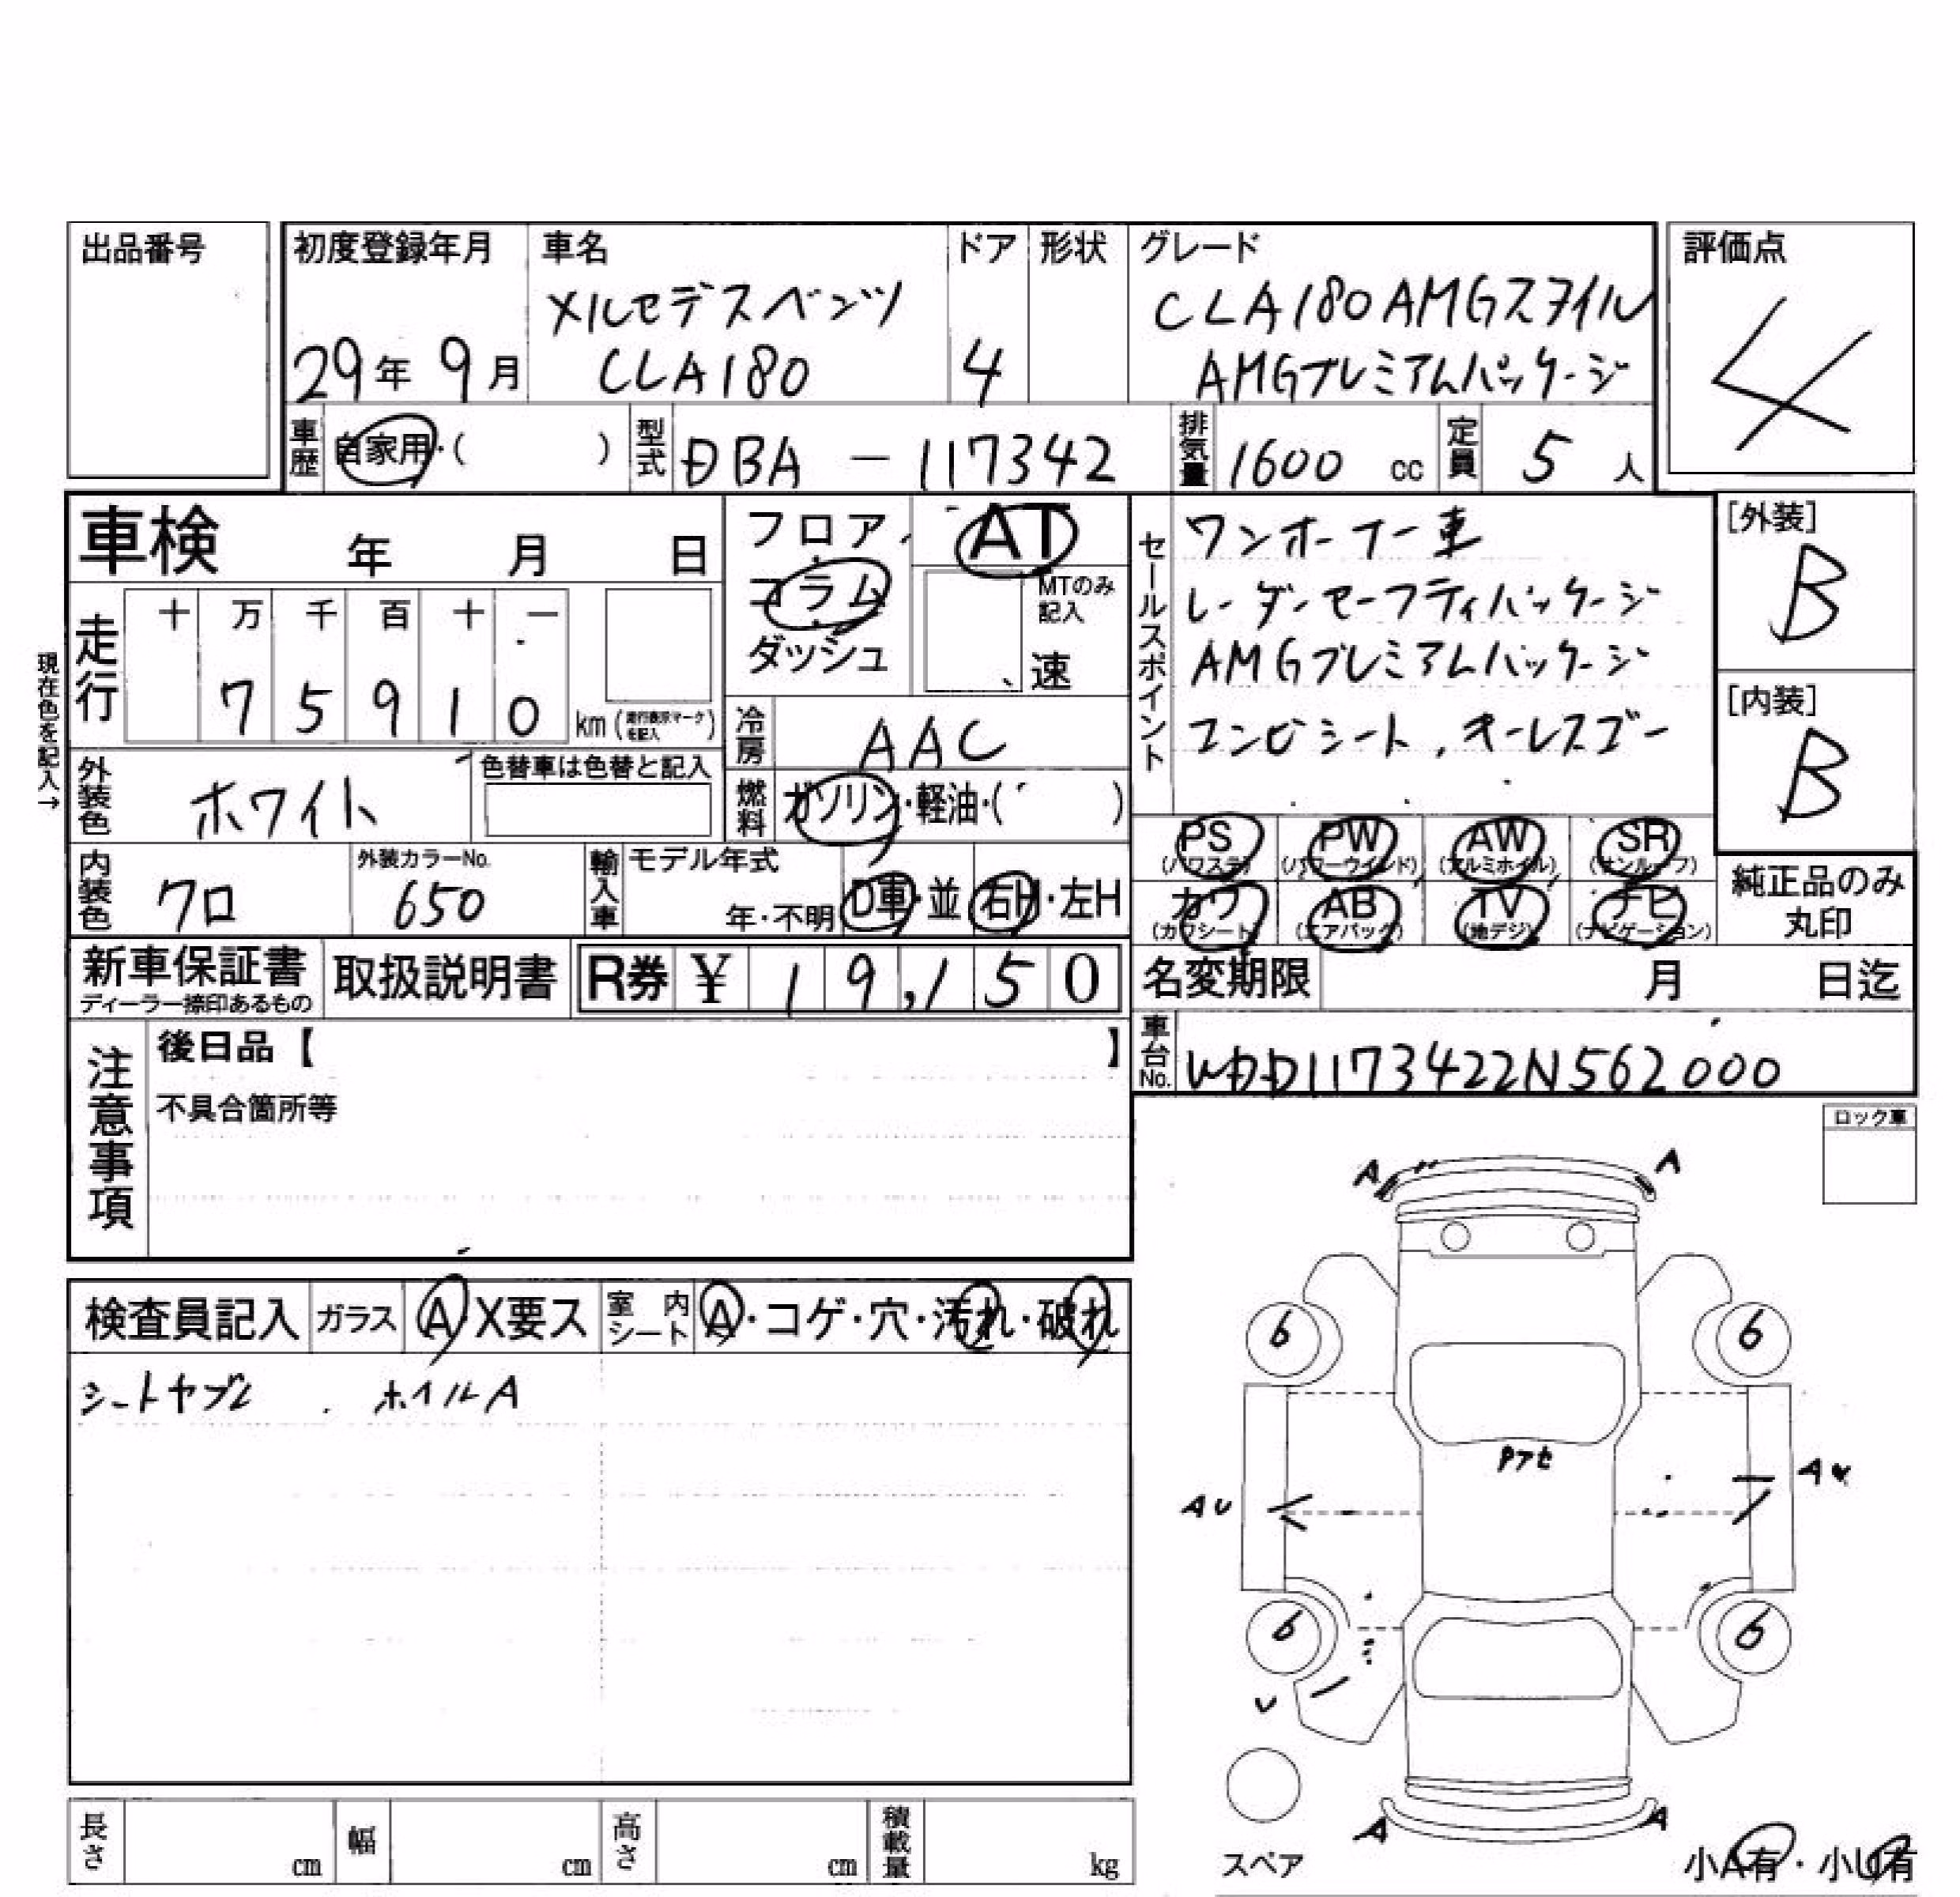 出品番号
初度登録年月
29年 9月
車名
メルセデスベンツ
CLA180
ドア
4
形状
グレード
CLA180AMGスタイル
AMGプレミアムパッケージ
評価点
4
車歴
自家用・( )
型式
DBA - 117342
排気量
1600 cc
定員
5 人
車検 年 月 日
フロア・
コラム・
ダッシュ
AT
MTのみ
記入
速
セールスポイント
ワンオーナー車
レーダーセーフティパッケージ
AMGプレミアムパッケージ
コンビシート、キーレスゴー
[外装]
B
[内装]
B
現在色を記入→
走行
十 万 千 百 十 一
7 5 9 1 0 km (走行表示マークを記入)
冷房
AAC
外装色
ホワイト
色替車は色替と記入
燃料
ガソリン・軽油・( )
PS (パワステ)
PW (パワーウインド)
AW (アルミホイル)
SR (サンルーフ)
カワ (カワシート)
AB (エアバック)
TV (地デジ)
ナビ (ナビゲーション)
純正品のみ
丸印
内装色
クロ
外装カラーNo.
650
輸入車
モデル年式
年・不明
D車・並
右H・左H
新車保証書
ディーラー捺印あるもの
取扱説明書
R券 ¥ 19,150
名変期限 月 日迄
車台No.
WDD1173422N562000
注意事項
後日品【 】
不具合箇所等
ロック車
検査員記入
ガラス
A・X要ス
室内シート
A・コゲ・穴・汚れ・破れ
シートヤブレ . ホイルA
A
A
6
6
AU
6
6
U
A
A
スペア
小A有・小U有
長さ cm
幅 cm
高さ cm
積載量 kg